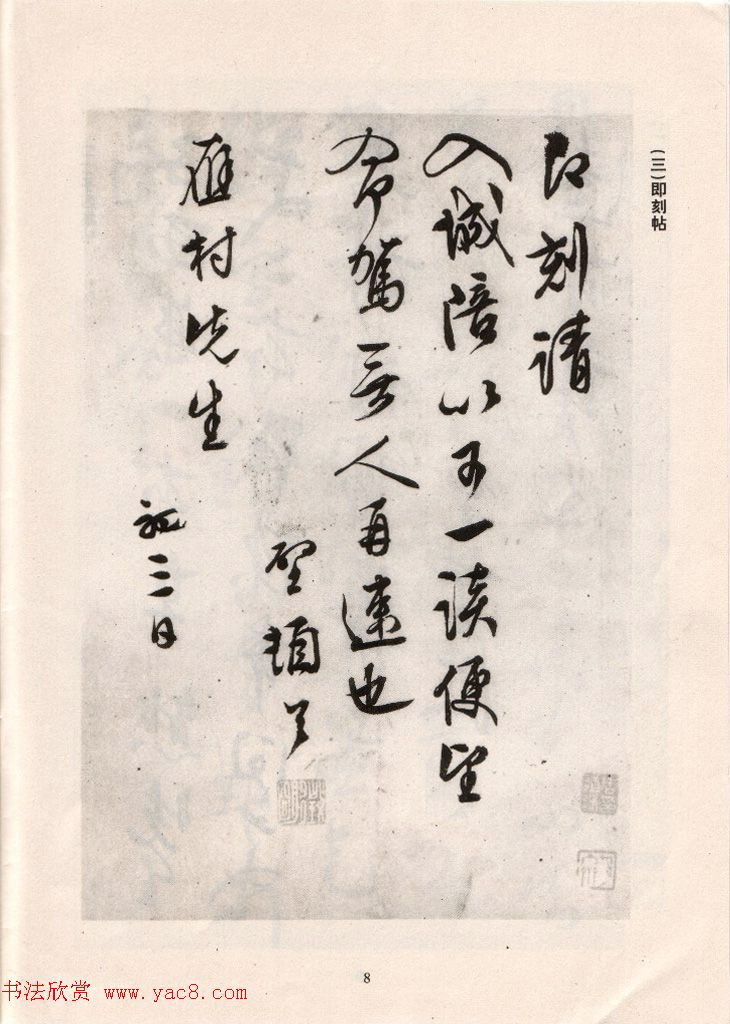 (三)即刻帖
即刻請
入城陪以可一談便望
命駕無人再速也
聖頓首
雁村先生
初三日
8
书法欣赏 www.yac8.com